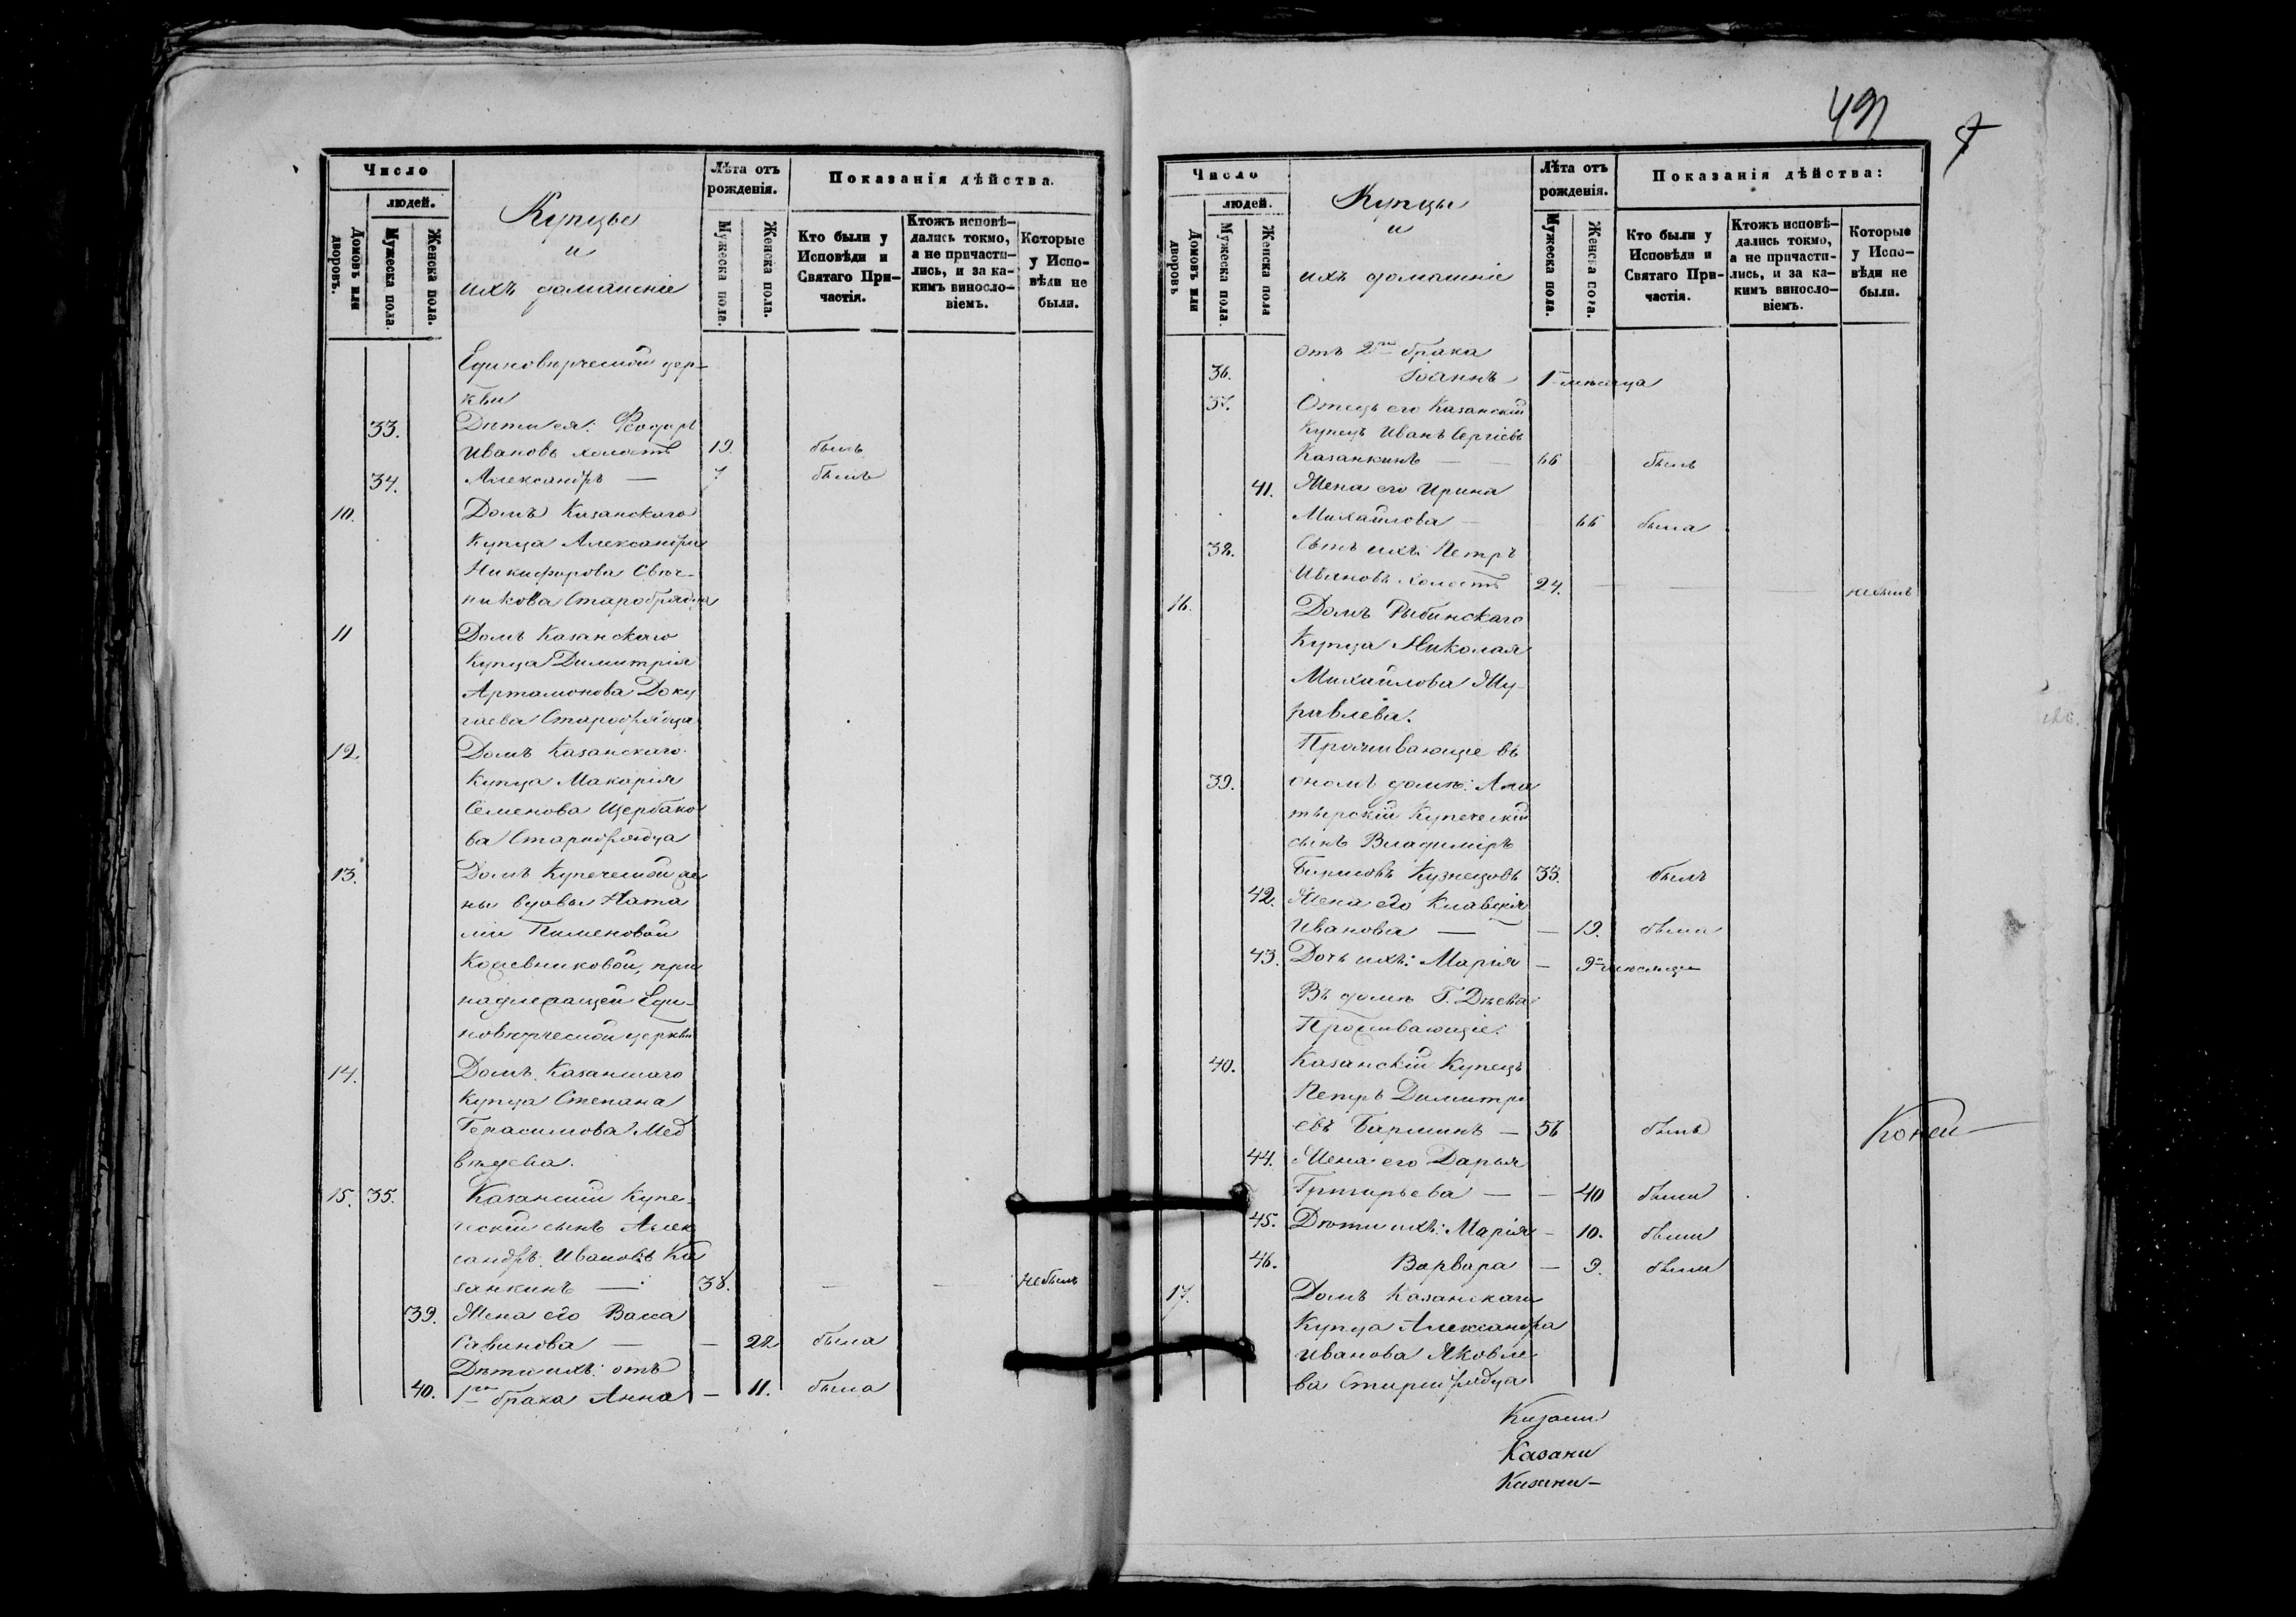 Число
людей.
Домовъ или дворовъ.
Мужеска пола.
Женска пола.
Купцы
и
ихъ домашніе
Лѣта отъ рожденія.
Мужеска пола.
Женска пола.
Показанія дѣйства.
Кто были у Исповѣди и Святаго При-частія.
Ктожъ исповѣ-дались токмо, а не причасти-лись, и за ка-кимъ винослo-віемъ.
Которые у Испо-вѣди не были.
Единовѣрческой цер-
кви
33. Дѣти ея: Ѳеодоръ
Ивановъ холостъ 19. былъ
34. Александръ — 7 былъ
10. Домъ Казанскаго
Купца Александра
Никифорова Свѣч-
никова Старобрядца
11 Домъ Казанскаго
Купца Димитрія
Артамонова Доку
чаева Старобрядца
12. Домъ Казанскаго
Купца Макарія
Семенова Щербако
ва Старобрядца
13. Домъ Купеческой же
ны вдовы Ната
ліи Пименовой
Кожевниковой, при
надлежащей Еди-
новѣрческой церкви
14. Домъ Казанскаго
Купца Степана
Герасимова Мед
вѣдева.
15. 35. Казанскій Купе-
ческій сынъ Алек
сандръ Ивановъ Ка
занкинъ — 38. — — не былъ
39. Жена его Васса
Савинова — — 22 была
Дѣти ихъ: отъ
40. 1го брака Анна — 11. была
491
7
Число
людей.
Домовъ или дворовъ
Мужеска пола.
Женска пола
Купцы
и
ихъ домашніе
Лѣта отъ рожденія.
Мужеска пола.
Женска пола.
Показанія дѣйства:
Кто были у Исповѣди и Святаго При-частія.
Ктожъ исповѣ-дались токмо, а не причасти-лись, и за ка-кимъ винослo-віемъ.
Которые у Испо-вѣди не были.
отъ 2го брака
36. Іоаннъ 1 мѣсяца
37. Отецъ его Казанскій
Купецъ Иванъ Сергіевъ
Казанкинъ — — 66 былъ
41. Жена его Ирина
Михайлова — 66 была
38. Сынъ ихъ: Петръ
Ивановъ холостъ 24. — — не былъ
16. Домъ Рыбинскаго
Купца Николая
Михайлова Жу-
равлева.
Проживающіе въ
39. ономъ домѣ: Ала
тырскій Купеческій
сынъ Владиміръ
Кузнецовъ 33. былъ
42. Жена его Клавдія
Иванова — — 19. была
43. Дочь ихъ: Марія — 9 мѣсяцевъ
Въ домѣ Г. Дѣева
Проживающіе:
40. Казанскій Купецъ
Петръ Димитрі
евъ — 56 былъ
44. Жена его Дарья
Григорьева — — 40 была
45. Дѣти ихъ: Марія — 10. была
46. Варвара — 9. была
17. Домъ Казанскаго
Купца Александра
Иванова Яковле-
ва Старобрядца
Казани
Казани
Казани—